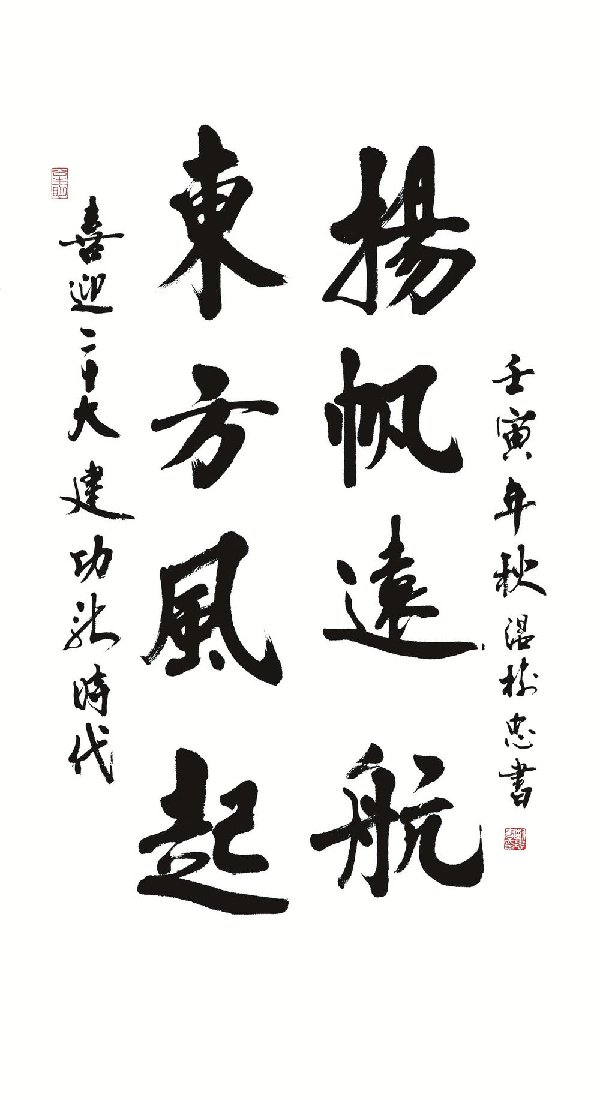 喜迎二十大建功新時代
東方風起
揚帆遠航
壬寅年秋温樹忠書